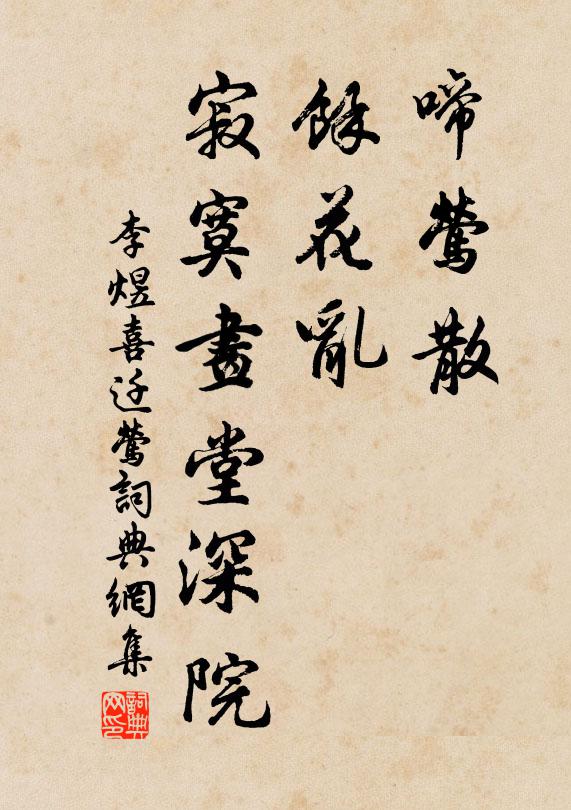 啼鶯散
餘花亂
寂寞畫堂深院
李煜喜迁鶯詞典網集
詞典网印